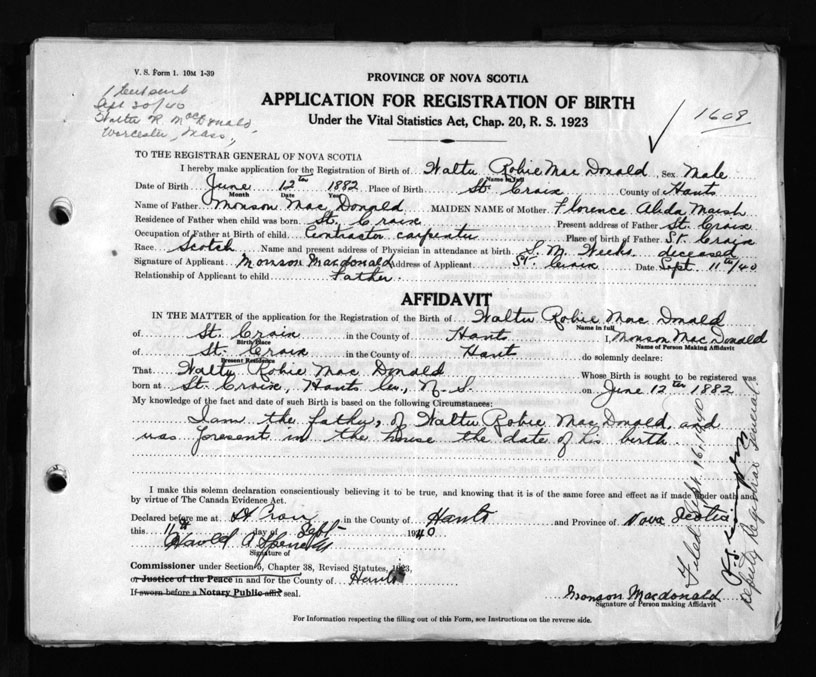 V. S. Form 1. 10M 1-39
1608
Sept 20/40
Walter R MacDonald
Worcester, Mass,
PROVINCE OF NOVA SCOTIA
APPLICATION FOR REGISTRATION OF BIRTH
Under the Vital Statistics Act, Chap. 20, R. S. 1923
TO THE REGISTRAR GENERAL OF NOVA SCOTIA
I hereby make application for the Registration of Birth of Walter Robie Mac Donald Sex Male
Name in full
Date of Birth June 12th 1882 Place of Birth St. Croix County of Hants
Month Date Year
Name of Father Monson Mac Donald MAIDEN NAME of Mother Florence Alida Marsh
Residence of Father when child was born St. Croix Present address of Father St. Croix
Occupation of Father at Birth of child Contractor carpenter Place of birth of Father St. Croix
Race Scotch Name and present address of Physician in attendance at birth S. M. Weeks deceased
Signature of Applicant Monson Macdonald Address of Applicant St. Croix Date Sept. 11th/40
Relationship of Applicant to child Father
AFFIDAVIT
IN THE MATTER of the application for the Registration of the Birth of Walter Robie Mac Donald
Name in full
of St. Croix in the County of Hants I, Monson Mac Donald
Birth Place Name of Person Making Affidavit
of St. Croix in the County of Hants do solemnly declare:
Present Residence
That Walter Robie Mac Donald Whose Birth is sought to be registered was
born at St. Croix, Hants Co., N. S. on June 12th 1882
My knowledge of the fact and date of such Birth is based on the following Circumstances:
I am the father of Walter Robie Mac Donald and
was present in the house the date of his birth.
I make this solemn declaration conscientiously believing it to be true, and knowing that it is of the same force and effect as if made under oath and
by virtue of The Canada Evidence Act.
Declared before me at St Croix in the County of Hants and Province of Nova Scotia
this 11th day of Sept 1940
Harold A Spence
Signature of
Commissioner under Section 5, Chapter 38, Revised Statutes, 1923,
or Justice of the Peace in and for the County of Hants
If sworn before a Notary Public affix seal.
Monson Macdonald
Signature of Person making Affidavit
For Information respecting the filling out of this Form, see Instructions on the reverse side.
Filed Sept. 16, 1940
Deputy Registrar General.